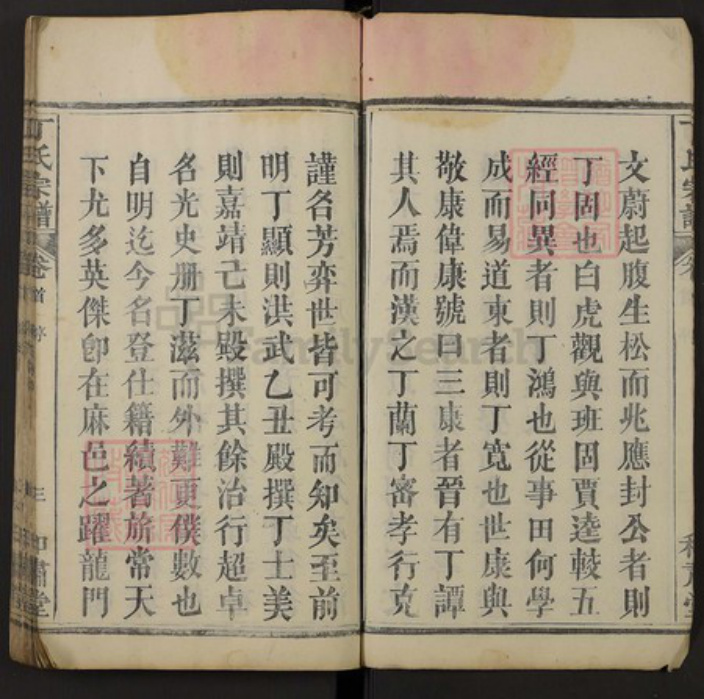 文蔚起腹生松而兆應封公者則
丁固也白虎觀與班固賈逵較五
經同異者則丁鴻也從事田何學
成而易道東者則丁寬也世康與
敬康偉康號曰三康者晉有丁譚
其人焉而漢之丁蘭丁審孝行克
謹名芳弈世皆可考而知矣至前
明丁顯則洪武乙丑殿撰丁士美
則嘉靖己未殿撰其餘治行超卓
名光史册丁滋而外難更僕數也
自明迄今名登仕籍績著旂常天
下尤多英傑卽在麻邑之躍龍門
丁氏宗譜
卷首
三
和肅堂
FamilySearch